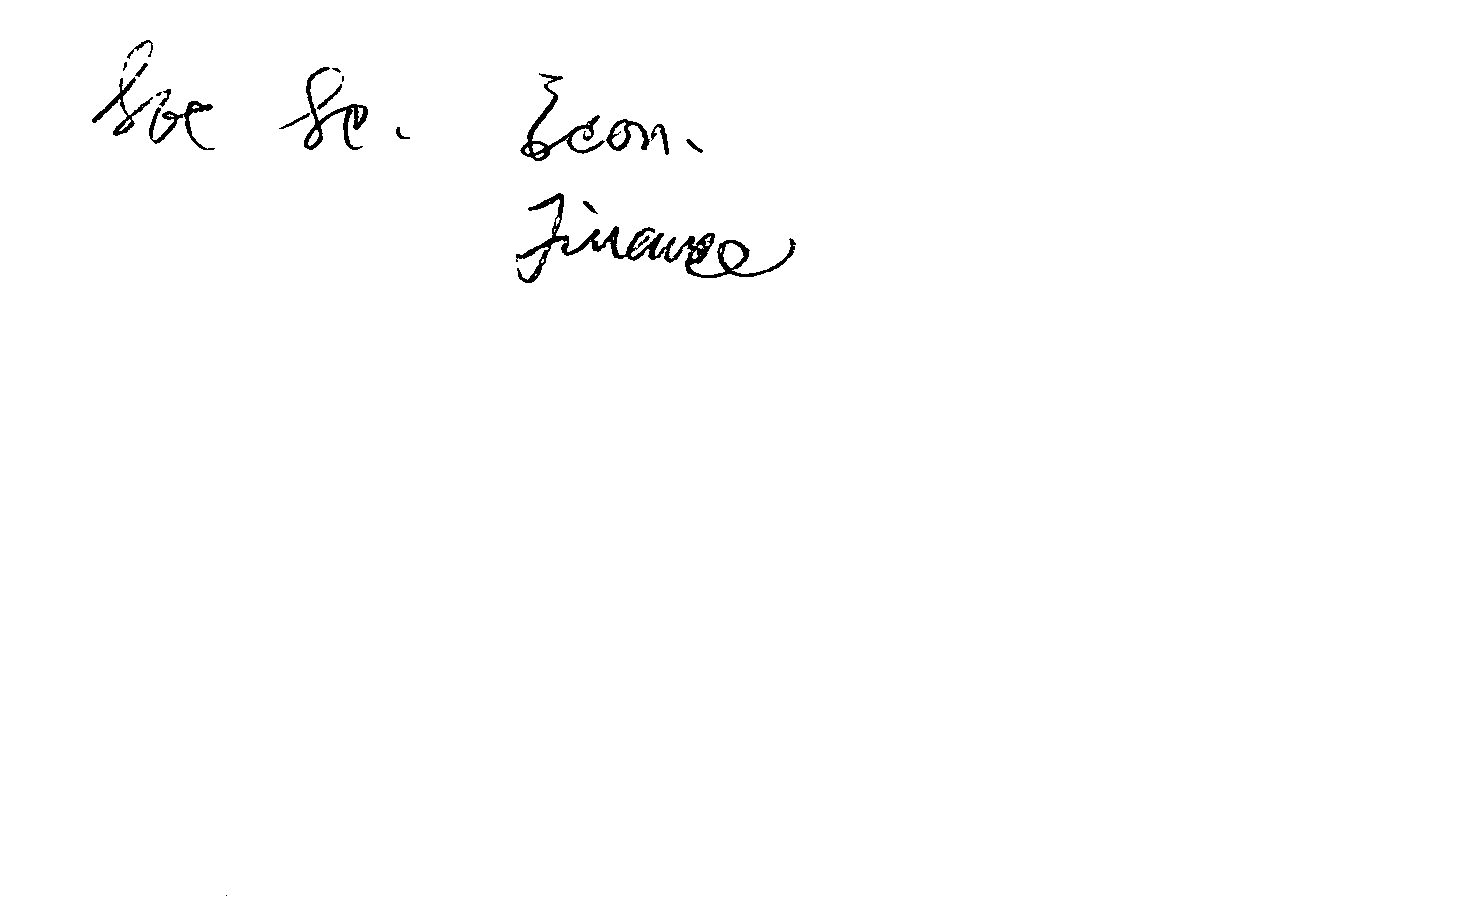 Soc Sc. Econ.
Finance